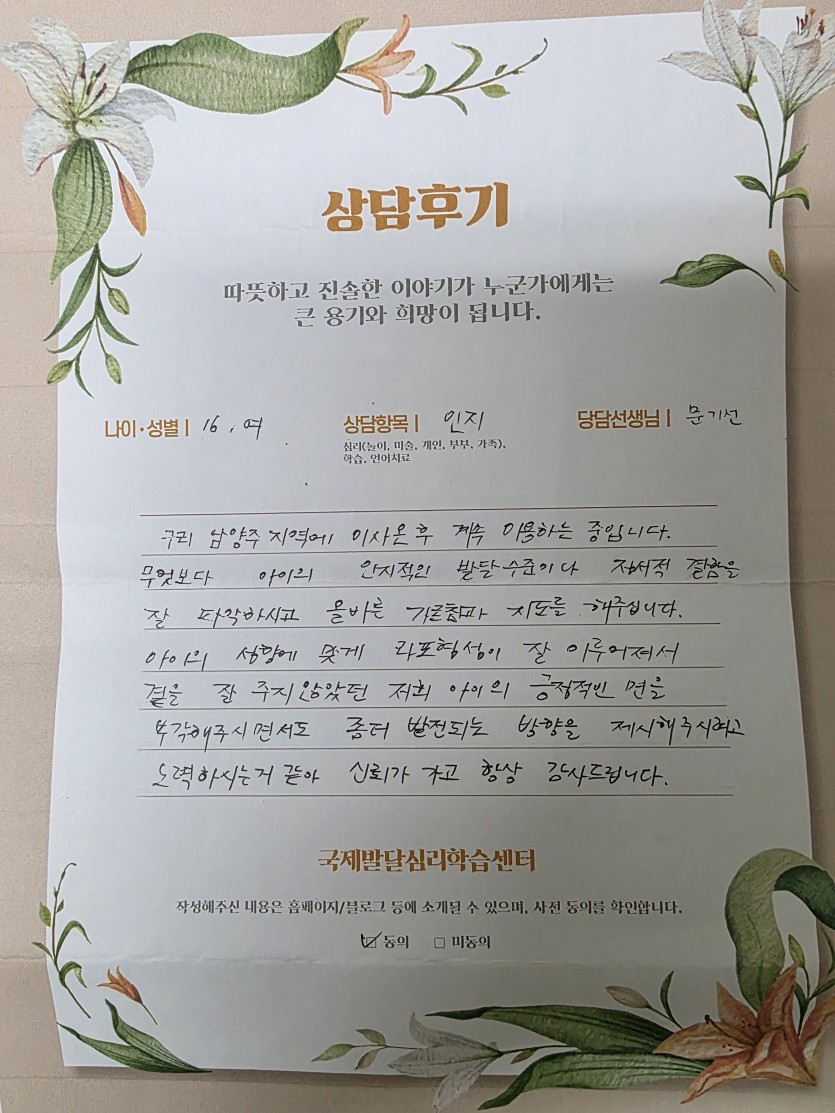 상담후기
따뜻하고 진솔한 이야기가 누군가에게는
큰 용기와 희망이 됩니다.
나이·성별 | 16, 여 상담항목 | 인지 담당선생님 | 문기선
심리(놀이, 미술, 개인, 부부, 가족),
학습, 언어치료
구리 남양주 지역에 이사온 후 계속 이용하는 중입니다.
무엇보다 아이의 인지적인 발달수준이나 정서적 결함을
잘 파악하시고 올바른 지도를 해주십니다.
아이의 성향에 맞게 라포형성이 잘 이루어져서
곁을 잘 주지않았던 저희 아이의 긍정적인 면을
부각해주시면서도 좀더 발전되는 방향을 제시해주시려고
노력하시는거 같아 신뢰가 가고 항상 감사드립니다.
국제발달심리학습센터
작성해주신 내용은 홈페이지/블로그 등에 소개될 수 있으며, 사전 동의를 확인합니다.
☑ 동의 □ 미동의